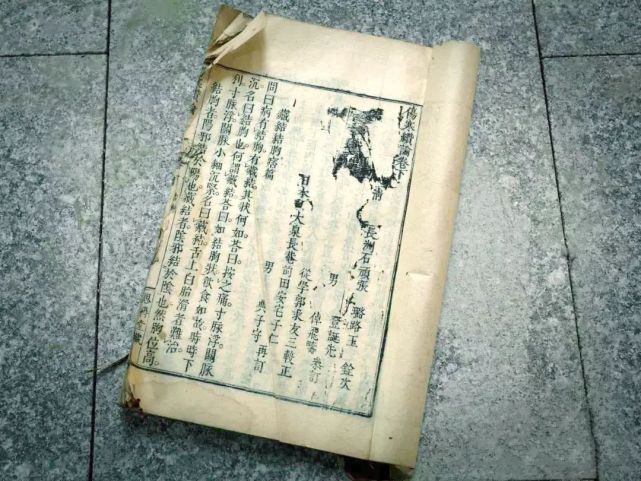 傷寒纘論卷下
清 長洲石頑張 璐路玉 銓次
男 登誕先
倬飛疇 參訂
從學郭求友三較正
日本 大泉長菴前田安宅子仁
男 典子守 再訂
藏結結胸痞篇
問曰病有結胸有藏結其狀何如答曰按之痛寸脉浮關脉
沉名曰結胸也何謂藏結答曰如結胸狀飲食如故時時下
利寸脉浮關脉小細沉緊名曰藏結舌上白胎滑者難治
結胸者陽邪結於陽也藏結者陰邪結於陰也然胸位高